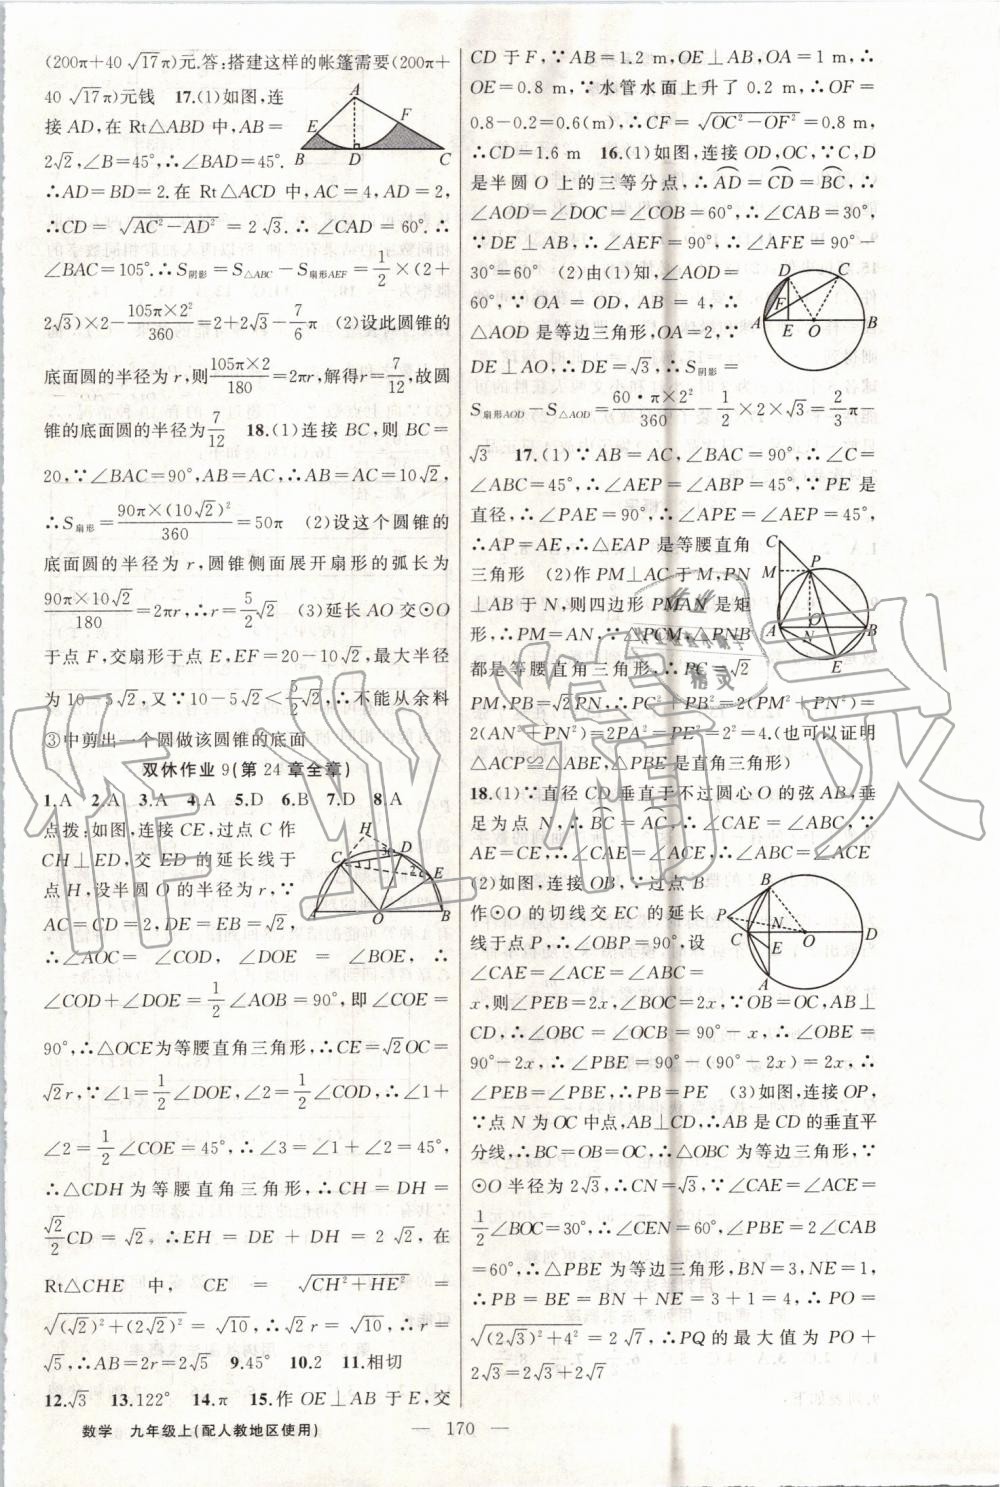 (200π+40√17π)元.答:搭建这样的帐篷需要(200π+
40√17π)元钱　17.(1)如图,连
接AD,在Rt△ABD中,AB=
2√2,∠B=45°,∴∠BAD=45°.
∴AD=BD=2.在Rt△ACD中,AC=4,AD=2,
∴CD=√(AC²-AD²)=2√3.∴∠CAD=60°.∴
∠BAC=105°.∴S阴影=S△ABC-S扇形AEF=1/2×(2+
2√3)×2-105π×2²/360=2+2√3-7/6π　(2)设此圆锥的
底面圆的半径为r,则105π×2/180=2πr,解得r=7/12,故圆
锥的底面圆的半径为7/12　18.(1)连接BC,则BC=
20,∵∠BAC=90°,AB=AC,∴AB=AC=10√2,
∴S扇形=90π×(10√2)²/360=50π　(2)设这个圆锥的
底面圆的半径为r,圆锥侧面展开扇形的弧长为
90π×10√2/180=2πr,∴r=5/2√2　(3)延长AO交⊙O
于点F,交扇形于点E,EF=20-10√2,最大半径
为10-5√2,又∵10-5√2<5/2√2,∴不能从余料
③中剪出一个圆做该圆锥的底面
双休作业9(第24章全章)
1.A　2.A　3.A　4.A　5.D　6.B　7.D　8.A
点拨:如图,连接CE,过点C作
CH⊥ED,交ED的延长线于
点H,设半圆O的半径为r,∵
AC=CD=2,DE=EB=√2,
∴∠AOC=∠COD,∠DOE=∠BOE,∴
∠COD+∠DOE=1/2∠AOB=90°,即∠COE=
90°,∴△OCE为等腰直角三角形,∴CE=√2OC=
√2r,∵∠1=1/2∠DOE,∠2=1/2∠COD,∴∠1+
∠2=1/2∠COE=45°,∴∠3=∠1+∠2=45°,
∴△CDH为等腰直角三角形,∴CH=DH=
√2/2CD=√2,∴EH=DE+DH=2√2,在
Rt△CHE中,CE=√(CH²+HE²)=
√((√2)²+(2√2)²)=√10,∴√2r=√10,∴r=
√5,∴AB=2r=2√5　9.45°　10.2　11.相切
12.√3　13.122°　14.π　15.作OE⊥AB于E,交
CD于F,∵AB=1.2 m,OE⊥AB,OA=1 m,∴
OE=0.8 m,∵水管水面上升了0.2 m,∴OF=
0.8-0.2=0.6(m),∴CF=√(OC²-OF²)=0.8 m,
∴CD=1.6 m　16.(1)如图,连接OD,OC,∵C,D
是半圆O上的三等分点,∴AD=CD=BC,∴
∠AOD=∠DOC=∠COB=60°,∴∠CAB=30°,
∵DE⊥AB,∴∠AEF=90°,∴∠AFE=90°-
30°=60°　(2)由(1)知,∠AOD=
60°,∵OA=OD,AB=4,∴
△AOD是等边三角形,OA=2,∵
DE⊥AO,∴DE=√3,∴S阴影=
S扇形AOD-S△AOD=60·π×2²/360-1/2×2×√3=2/3π
√3　17.(1)∵AB=AC,∠BAC=90°,∴∠C=
∠ABC=45°,∴∠AEP=∠ABP=45°,∵PE是
直径,∴∠PAE=90°,∴∠APE=∠AEP=45°,
∴AP=AE,∴△EAP是等腰直角
三角形　(2)作PM⊥AC于M,PN
⊥AB于N,则四边形PMAN是矩
形,∴PM=AN,∵△PCM,△PNB
都是等腰直角三角形,∴PC=√2
PM,PB=√2PN,∴PC²+PB²=2(PM²+PN²)=
2(AN²+PN²)=2PA²=PE²=2²=4.(也可以证明
△ACP≌△ABE,△PBE是直角三角形)
18.(1)∵直径CD垂直于不过圆心O的弦AB,垂
足为点N,∴BC=AC,∴∠CAE=∠ABC,∵
AE=CE,∴∠CAE=∠ACE,∴∠ABC=∠ACE
(2)如图,连接OB,∵过点B
作⊙O的切线交EC的延长
线于点P,∴∠OBP=90°,设
∠CAE=∠ACE=∠ABC=
x,则∠PEB=2x,∠BOC=2x,∵OB=OC,AB⊥
CD,∴∠OBC=∠OCB=90°-x,∴∠OBE=
90°-2x,∴∠PBE=90°-(90°-2x)=2x,∴
∠PEB=∠PBE,∴PB=PE　(3)如图,连接OP,
∵点N为OC中点,AB⊥CD,∴AB是CD的垂直平
分线,∴BC=OB=OC,∴△OBC为等边三角形,∵
⊙O半径为2√3,∴CN=√3,∵∠CAE=∠ACE=
1/2∠BOC=30°,∴∠CEN=60°,∠PBE=2∠CAB
=60°,∴△PBE为等边三角形,BN=3,NE=1,
∴PB=BE=BN+NE=3+1=4,∴PO=
√((2√3)²+4²)=2√7,∴PQ的最大值为PO+
2√3=2√3+2√7
数学　九年级上(配人教地区使用)
— 170 —